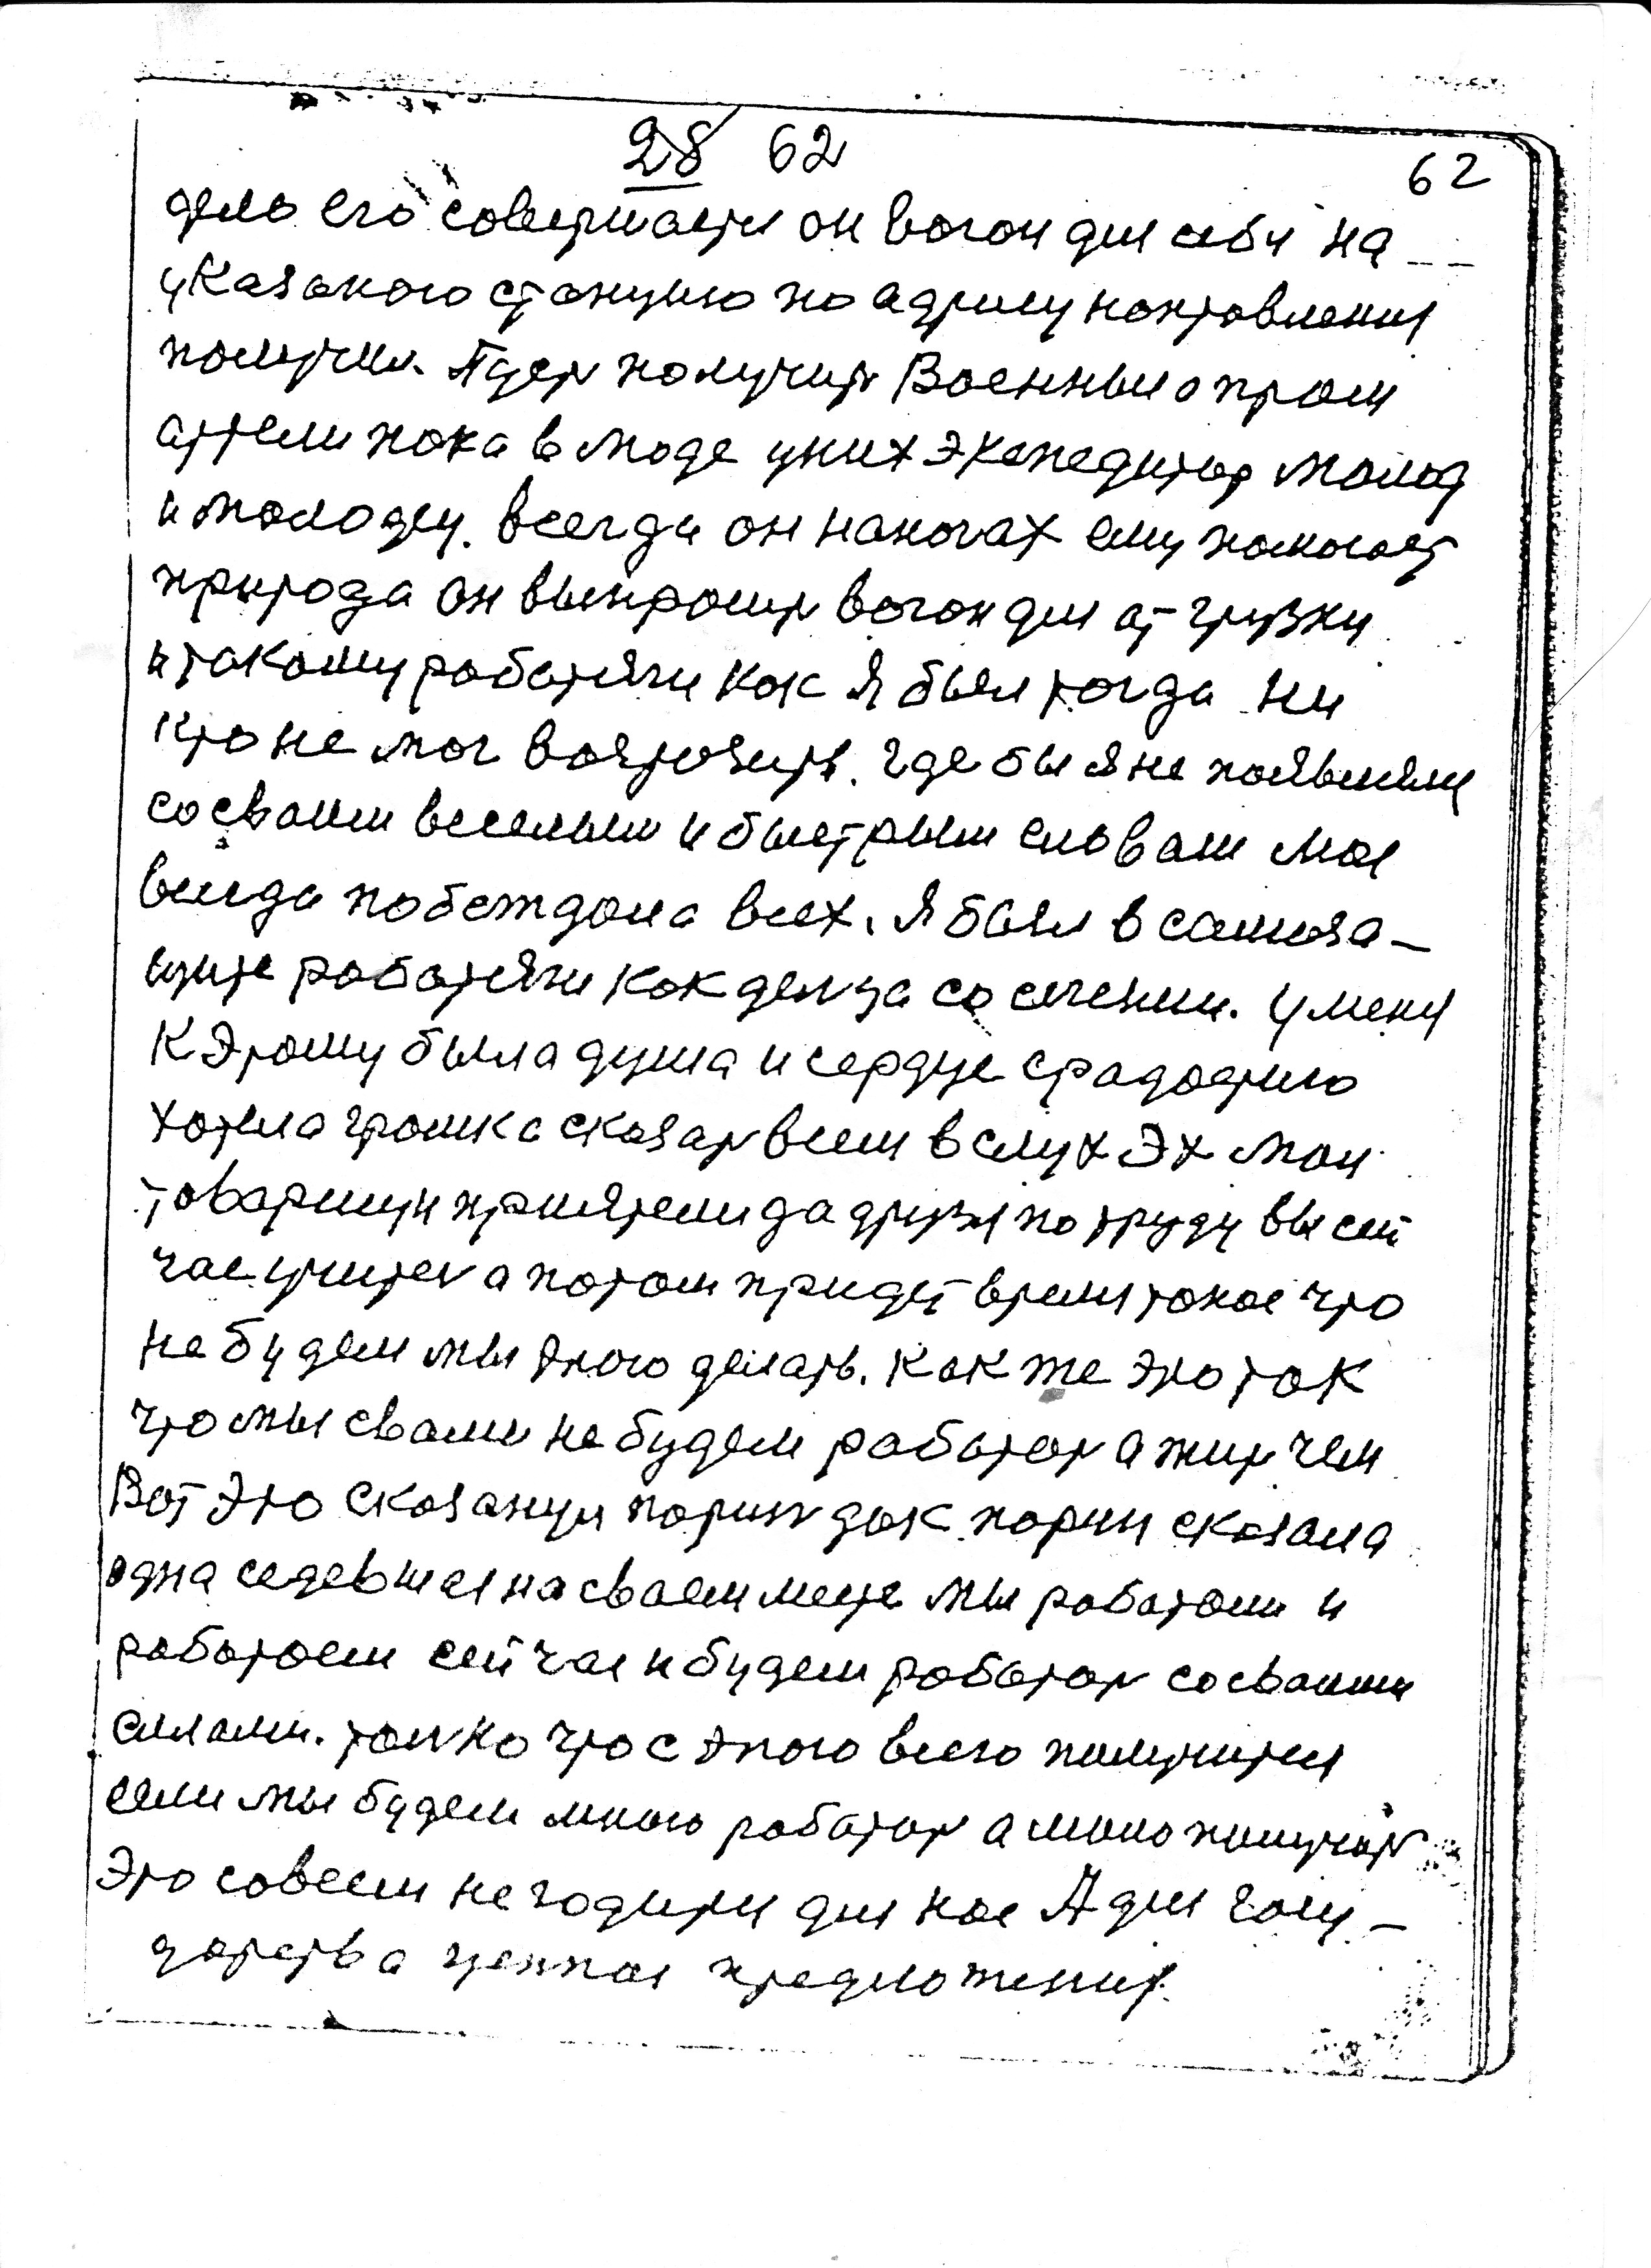 28 62
62
дело его совершается он вогон для себя на
указаного станцию по адресу направления
получил. Пусть получить Военный пром
артели пока в моде у них экспедитор молод
и молодец. всегда он наногах ему помогает
природа он выпросить вогон для отгрузки
и такому работяги как я был тогда ни
кто не мог возрозить. где бы я не появился
со своим веселым и быстрым словам моя
всегда побеждала всех. я был в самоза-
щите работяги как со сечении. У меня
К этому была душа и сердце срадостию
хотела громка сказать всем в слух Эх мои
товарищи приятели да друзья по труду вы сей
час учитесь а потом придет время такое что
не будем мы этого делать. Как же это так
что мы свами не будем работать а жить чем
Вот это сказаную партию дак партия сказала
одна седевшая на сваем месте мы работали и
работаем сей час и будем работать со сваими
силами. только что с этого всего получится
если мы будем много работать а мало получать
Это совсем негодится для нас А для госу-
дарства ценная предложения.